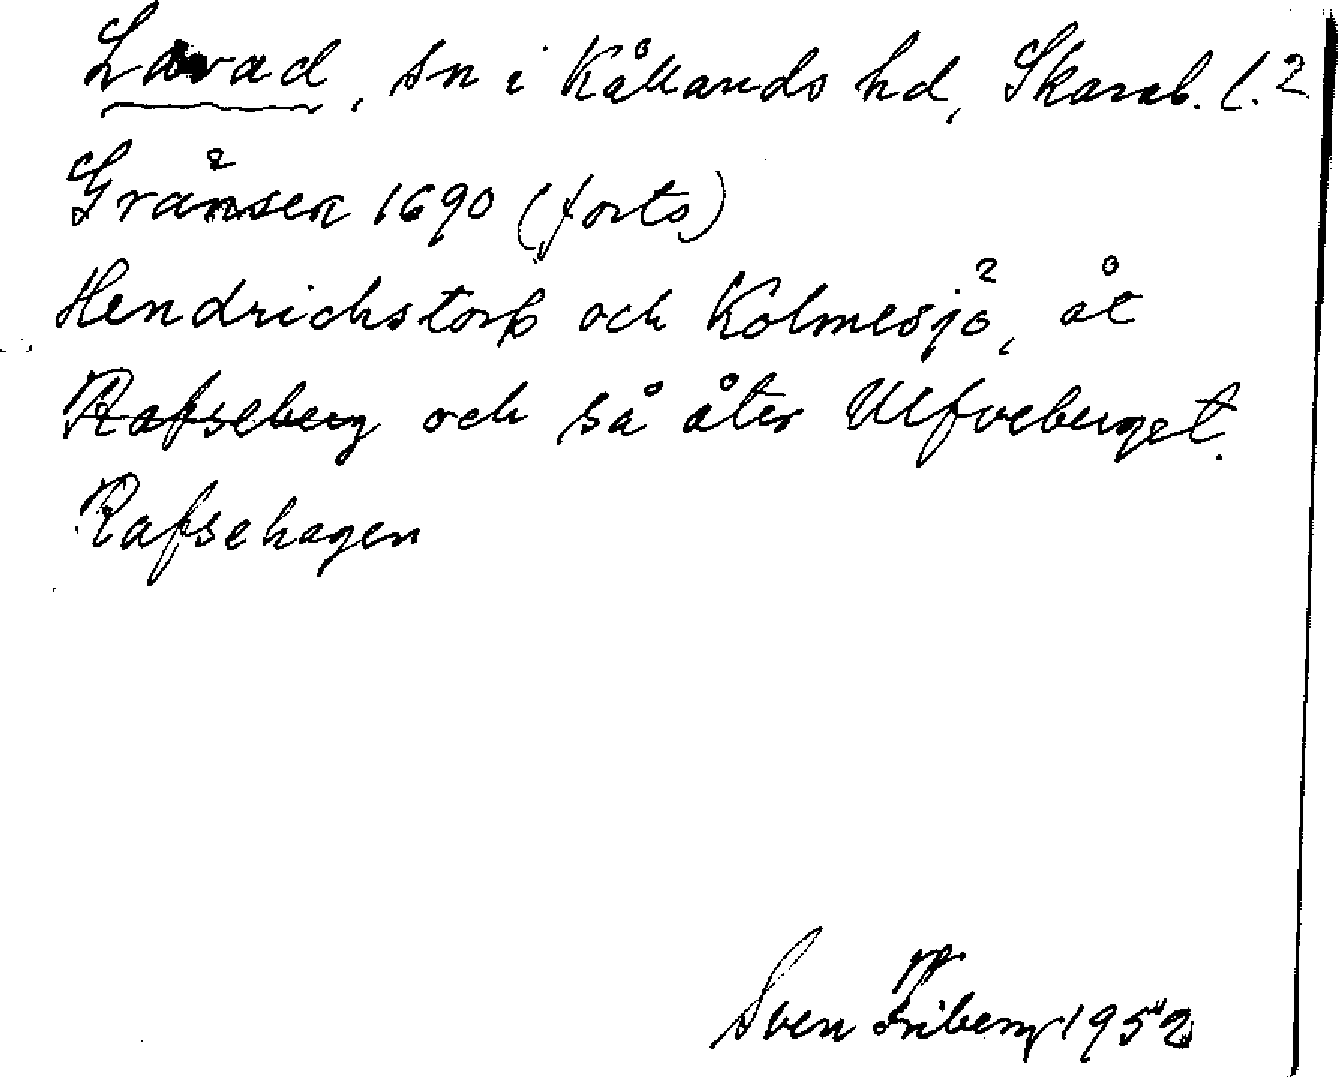 Lavad, sn i Kållands hd, Skarab. l. 2
Gränsen 1690 (forts)
Hendrichstorp och Kolmesjö, åt
Rafseberg och så åter Ulfveberget.
Rafsehagen
Sven Friberg 1952